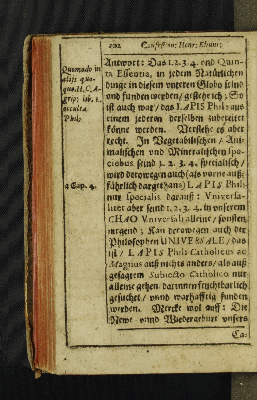 102 Confession; Henr: Khunr;
Quomodo in
alijs quo-
que. H. C. A-
grip; lib. 1.
occulta
Phil:
Antwort: Das 1. 2. 3. 4. vnd Quin-
ta Essentia, in jedem Natürlichen
dinge in diesem vnteren Globo seind
vnd funden werden / geschrieb; So
ist auch war / das LAPIS Phil: aus
einem jederen derselben zubereitet
könne werden. Verstehe es aber
recht. In Vegetabilischen / Ani-
malischen vnd Mineralischen Spe-
ciebus seind 1. 2. 3. 4. specialisch /
wird derowegen auch (als vorne auß-
a Cap. 4.
führlich dargethan) LAPIS Phil:
nur specialis darauß: Vniversa-
liter aber seind 1. 2. 3. 4. in vnserem
CHAO Vniversali alleine / sonsten
nirgend; Kan derowegen auch der
Philosophen UNIVERSALE / das
ist / LAPIS Phil: Catholicus ac
Magnus auß nichts anders / als auß
gesagtem Subiecto Catholico nur
alleine gehen. darinnen fruchtbarlich
gesuchet / vnnd warhafftig funden
werden. Mercke wol auff: Die
Newe- vnnd Wiedergeburt vnsers
Ca-